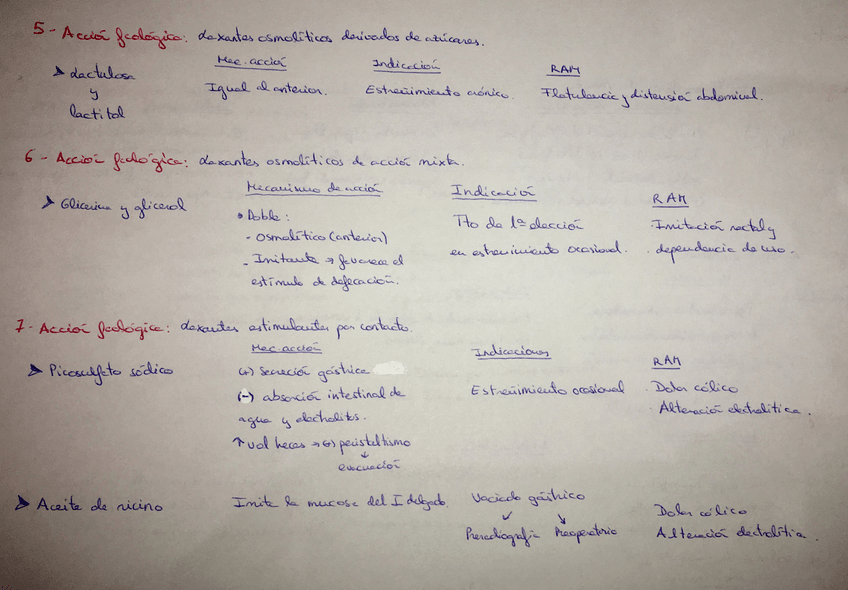 5- Acción fcológica: laxantes osmolíticos derivados de azúcares.
Mec. acción Indicación RAM
➤ Lactulosa Igual al anterior. Estreñimiento crónico. Flatulencia y distensión abdominal.
y
lactitol
6- Acción fcológica: laxantes osmolíticos de acción mixta.
Mecanismo de acción Indicación RAM
➤ Glicerina y glicerol • Doble: Tto de 1ª elección · Irritación rectal y
- Osmolítico (anterior) en estreñimiento ocasional. · dependencia de uso.
- Irritante → favorece el
estímulo de defecación.
7- Acción fcológica: laxantes estimulantes por contacto.
Mec. acción Indicaciones RAM
➤ Picosulfato sódico (+) Secreción gástrica Estreñimiento ocasional · Dolor cólico
(-) absorción intestinal de · Alteración electrolítica.
agua y electrolitos.
↑ vol heces → (+) peristaltismo
↓
evacuación
➤ Aceite de ricino Irrita la mucosa del I delgado Vaciado gástrico Dolor cólico
↙ ↘
Preradiografía Preoperatorio Alteración electrolítica.